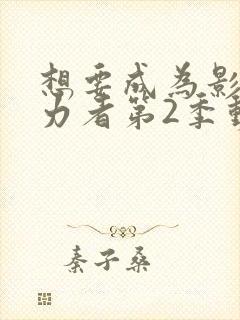 想要成為影
力者第2季動
秦子桑